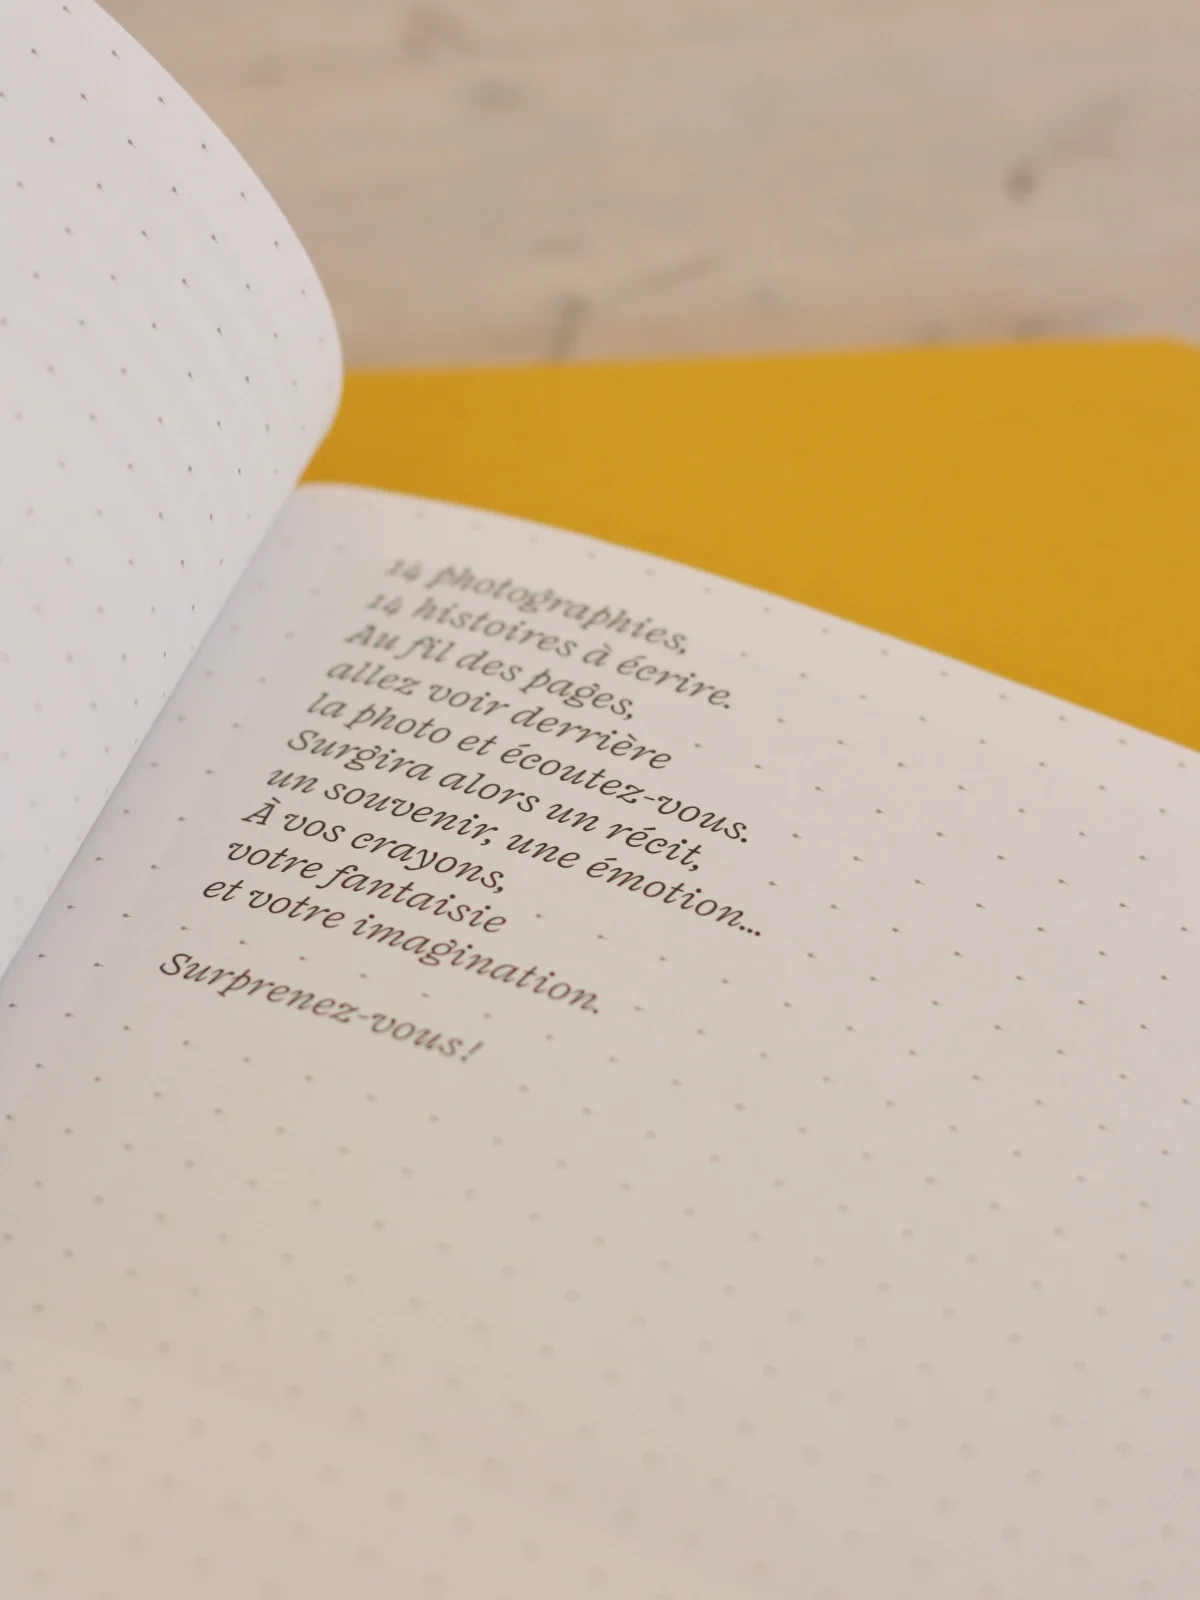 14 photographies,
14 histoires à écrire.
Au fil des pages,
allez voir derrière
la photo et écoutez-vous.
Surgira alors un récit,
un souvenir, une émotion...
À vos crayons,
votre fantaisie
et votre imagination.
Surprenez-vous!